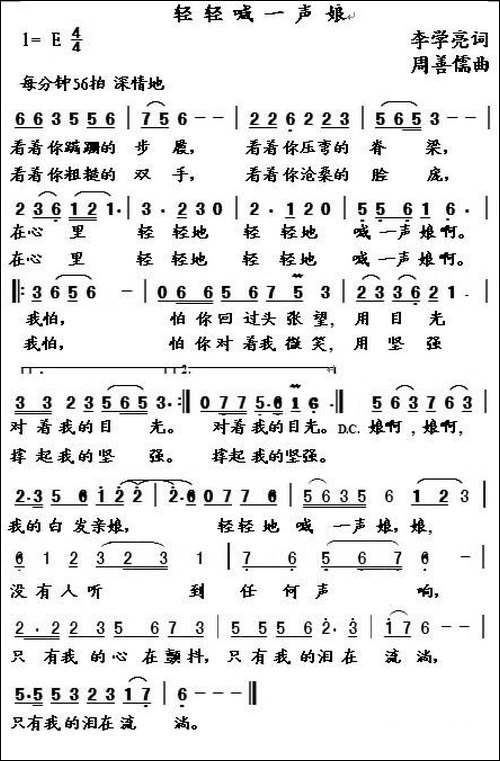 轻轻喊一声娘
1= E 4/4
李学亮词
周善儒曲
每分钟56拍 深情地
6 6 3 5 5 6 | 7 5 6 - - | 2 2 6 2 2 3 | 5 6 5 3 - - |
看着你蹒跚的 步 履, 看着你压弯的 脊 梁,
看着你粗糙的 双 手, 看着你沧桑的 脸 庞,
2 3 6 1 2 1 · | 3 · 2 3 0 | 2 · 1 2 0 | 5 5 6 1 6 · |
在心 里 轻 轻地 轻 轻地 喊 一声娘啊。
在心 里 轻 轻地 轻 轻地 喊 一声娘啊。
‖: 3 6 5 6 - | 0 6 6 5 6 7 5 3 | 2 3 3 6 2 1 · |
我怕, 怕 你回 过头 张 望, 用 目 光
我怕, 怕 你对 着我 微 笑, 用 坚 强
1. 2.
3 3 2 3 5 6 5 3 · :‖ 0 7 7 5 · 6 1 6 · ‖ 5 6 3 7 6 3 |
对 着 我的 目 光。 对着我的目光。D.C. 娘啊 , 娘啊,
撑 起 我的 坚 强。 撑起我的坚强。
2·3 5 6 1 2 2 | 2·6 0 7 7 6 | 5 6 3 5 6 1 2 3 |
我的 白 发亲娘, 轻轻 地 喊 一声娘, 娘,
6 1 2 3 2 3 1 | 7 6 5 6 7 6 - |
没 有 人 听 到 任 何 声 响,
2 · 2 2 3 5 6 7 3 | 5 5 5 6 2 · 3 | 1 7 6 - - |
只 有我 的 心 在 颤抖, 只 有我 的泪在 流 淌,
5·5 5 3 2 3 1 7 | 6 - - - ‖
只有我 的泪在 流 淌。